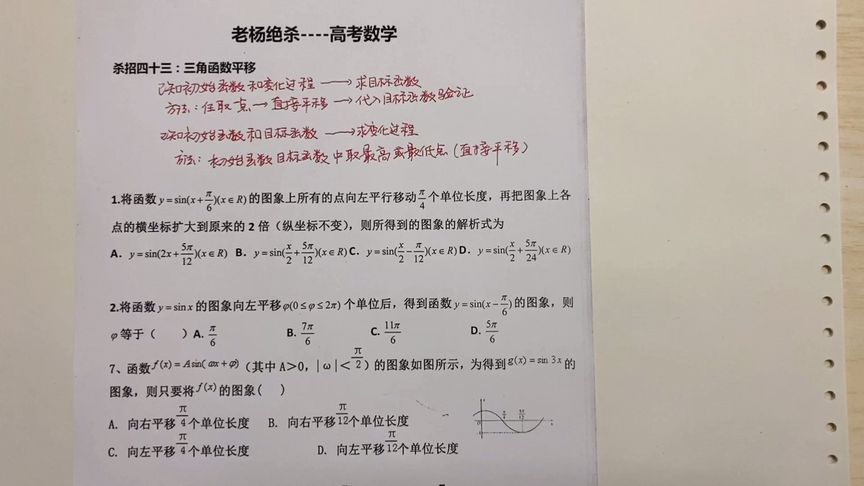 老杨绝杀----高考数学
杀招四十三：三角函数平移
已知初始函数和变化过程 → 求目标函数
方法：任取点 → 直接平移 → 代入目标函数验证
已知初始函数和目标函数 → 求变化过程
方法：初始函数目标函数中取最高或最低点（直接平移）
1.将函数 y=sin(x+π/6)(x∈R)的图象上所有的点向左平行移动 π/4 个单位长度，再把图象上各
点的横坐标扩大到原来的 2 倍（纵坐标不变），则所得到的图象的解析式为
A. y=sin(2x+5π/12)(x∈R) B. y=sin(x/2+5π/12)(x∈R) C. y=sin(x/2-π/12)(x∈R) D. y=sin(x/2+5π/24)(x∈R)
2.将函数 y=sin x 的图象向左平移 φ(0≤φ≤2π) 个单位后，得到函数 y=sin(x-π/6) 的图象，则
φ 等于（ ）A. π/6 B. 7π/6 C. 11π/6 D. 5π/6
7、函数 f(x)=Asin(ωx+φ)（其中 A＞0，|ω|＜π/2）的图象如图所示，为得到 g(x)=sin 3x 的
图象，则只要将 f(x) 的图象( )
A. 向右平移 π/4 个单位长度 B. 向右平移 π/12 个单位长度
C. 向左平移 π/4 个单位长度 D. 向左平移 π/12 个单位长度